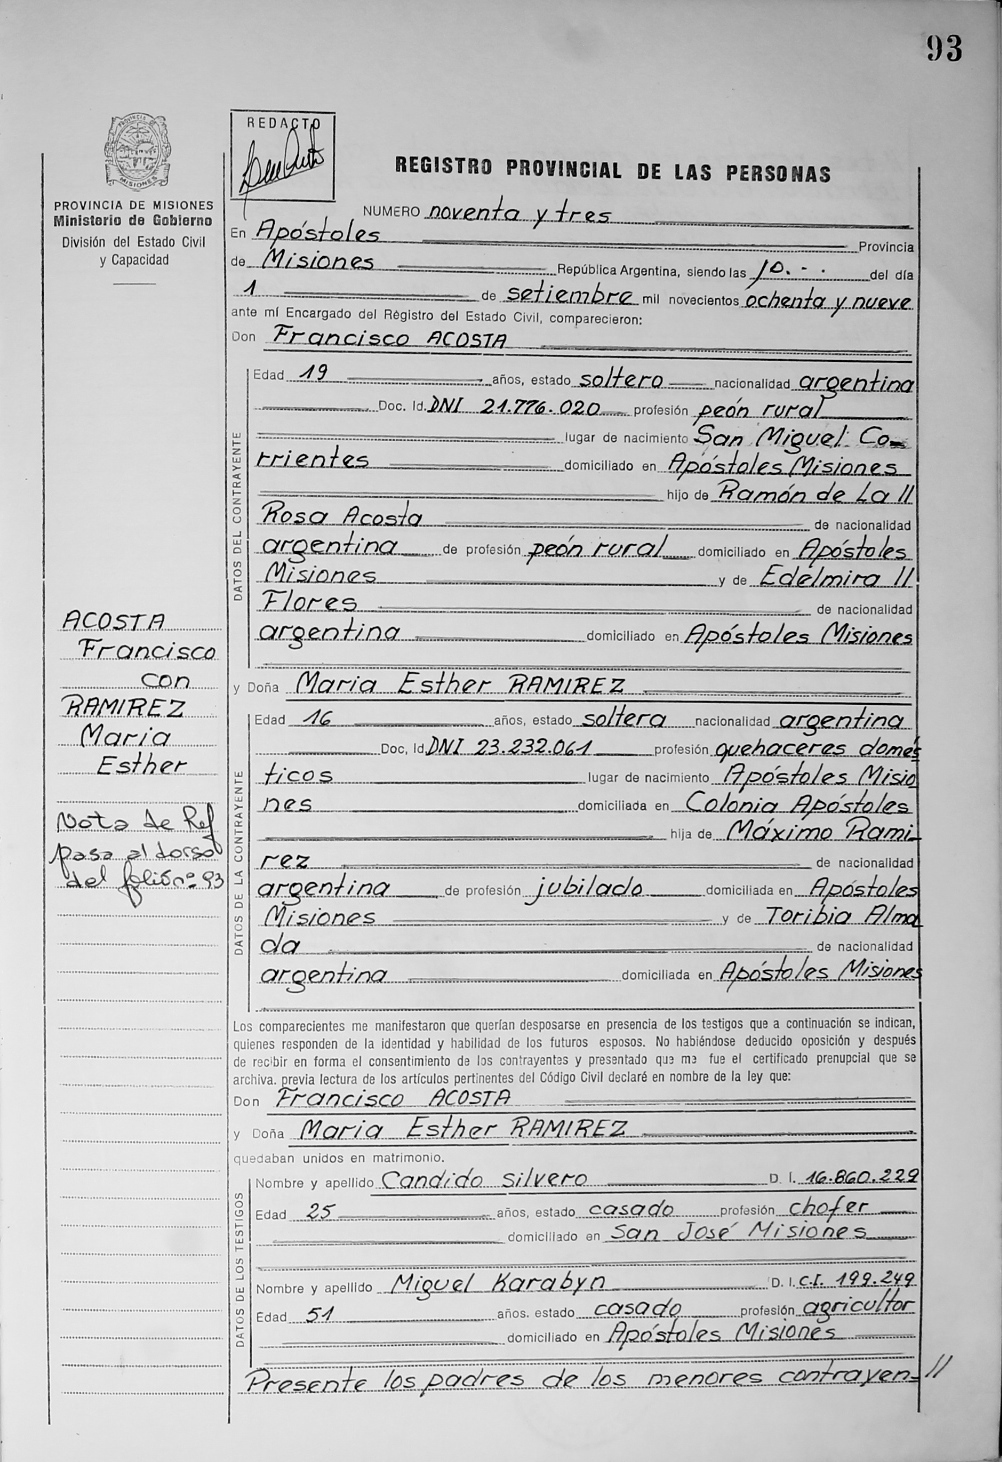 93
PROVINCIA DE MISIONES
Ministerio de Gobierno
División del Estado Civil
y Capacidad
REDACTO
REGISTRO PROVINCIAL DE LAS PERSONAS
NUMERO noventa y tres
En Apóstoles Provincia
de Misiones República Argentina, siendo las 10.-. del día
1 de setiembre mil novecientos ochenta y nueve
ante mí Encargado del Régistro del Estado Civil, comparecieron:
Don Francisco ACOSTA
DATOS DEL CONTRAYENTE
Edad 19 años, estado soltero nacionalidad argentina
Doc. Id. DNI 21.776.020 profesión peón rural
lugar de nacimiento San Miguel Co-
rrientes domiciliado en Apóstoles Misiones
hijo de Ramón de La //
Rosa Acosta de nacionalidad
argentina de profesión peón rural domiciliado en Apóstoles
Misiones y de Edelmira //
Flores de nacionalidad
argentina domiciliado en Apóstoles Misiones
ACOSTA
Francisco
con
RAMIREZ
Maria
Esther
Nota de Ref
pasa al dorso
del folio nº 93
y Doña Maria Esther RAMIREZ
DATOS DE LA CONTRAYENTE
Edad 16 años, estado soltera nacionalidad argentina
Doc, Id DNI 23.232.061 profesión quehaceres domés
ticos lugar de nacimiento Apóstoles Misio
nes domiciliada en Colonia Apóstoles
hija de Máximo Rami-
rez de nacionalidad
argentina de profesión jubilado domiciliada en Apóstoles
Misiones y de Toribia Alma
da de nacionalidad
argentina domiciliada en Apóstoles Misiones
Los comparecientes me manifestaron que querían desposarse en presencia de los testigos que a continuación se indican,
quienes responden de la identidad y habilidad de los futuros esposos. No habiéndose deducido oposición y después
de recibir en forma el consentimiento de los contrayentes y presentado que me fue el certificado prenupcial que se
archiva. previa lectura de los artículos pertinentes del Código Civil declaré en nombre de la ley que:
Don Francisco ACOSTA
y Doña Maria Esther RAMIREZ
quedaban unidos en matrimonio.
DATOS DE LOS TESTIGOS
Nombre y apellido Candido Silvero D. I. 16.860.229
Edad 25 años, estado casado profesión chofer
domiciliado en San José Misiones
Nombre y apellido Miguel Karabyn D. I. C.I. 199.249
Edad 51 años. estado casado profesión agricultor
domiciliado en Apóstoles Misiones
Presente los padres de los menores contrayen- //